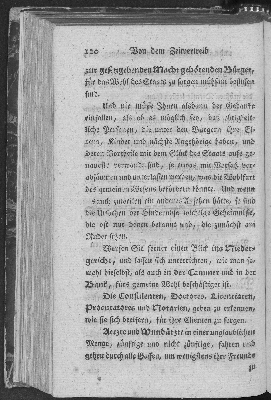 120 Von dem Zeitvertreib
zur gesetzgebenden Macht gehörenden Bürger,
für das Wohl des Staats zu sorgen mühsam beflissen
sind.
Und nie müsse Ihnen alsdann der Gedanke
einfallen, als ob es möglich sey, daß obrigkeit-
liche Personen, die unter den Bürgern Ihre El-
tern, Kinder und nächste Angehörige haben, und
deren Vortheile mit dem Glück des Staats aufs ge-
naueste verwandt sind, je etwas mit Vorsatz ver-
absäumen und unterlassen werden, was die Wohlfart
des gemeinen Wesens befördern könnte. Und wenn
auch zuweilen ein anderes Ansehen hätte, so sind
die Ursachen der Hindernisse wichtige Geheimnisse,
die nur denen bekannt sind, die zunächst am
Ruder sitzen.
Werfen Sie ferner einen Blick ins Nieder-
gericht, und lassen sich unterrichten, wie man so-
wohl hieselbst, als auch in der Cammer und in der
Bank, fürs gemeine Wohl beschäftiget ist.
Die Consulenten, Doctores, Licentiaten,
Procuratores und Notarien, geben zu erkennen,
wie sie sich beeifern, für ihre Clienten zu sorgen.
Aerzte und Wundärzte in einer unglaublichen
Menge, zünftige und nicht zünftige, fahren und
gehen durch alle Gassen, um wenigstens ihre Freunde
zu